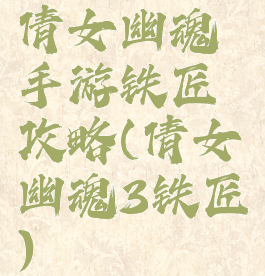 倩女幽魂
手游铁匠
攻略(倩女
幽魂3铁匠
)